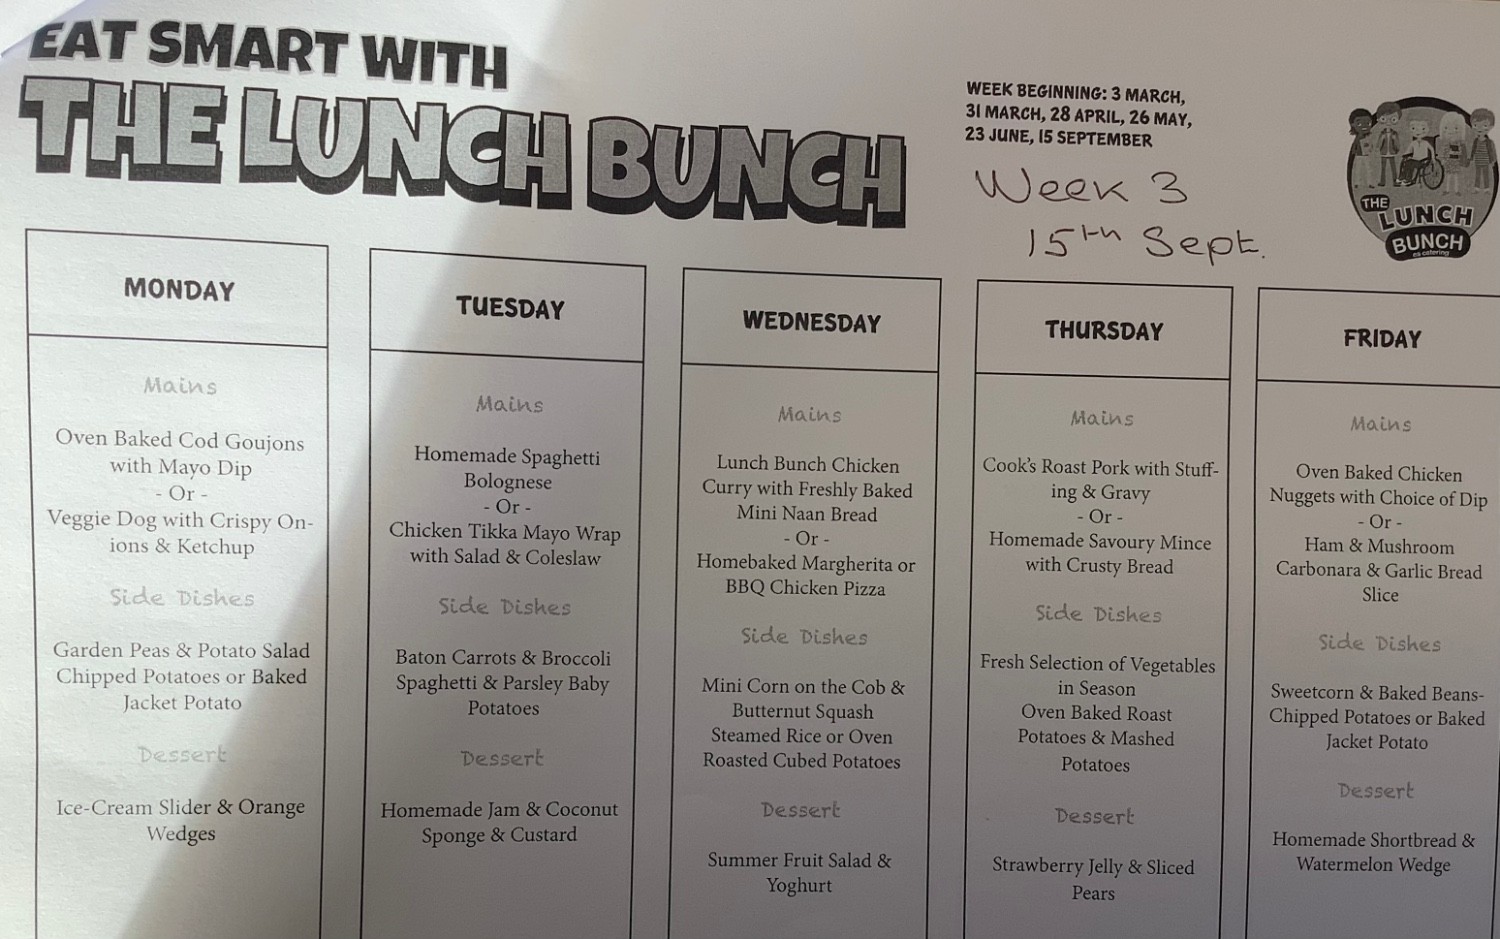 EAT SMART WITH
THE LUNCH BUNCH
WEEK BEGINNING: 3 MARCH,
31 MARCH, 28 APRIL, 26 MAY,
23 JUNE, 15 SEPTEMBER
Week 3
15th Sept.
THE
LUNCH
BUNCH
ea catering
MONDAY
Mains
Oven Baked Cod Goujons
with Mayo Dip
- Or -
Veggie Dog with Crispy On-
ions & Ketchup
Side Dishes
Garden Peas & Potato Salad
Chipped Potatoes or Baked
Jacket Potato
Dessert
Ice-Cream Slider & Orange
Wedges
TUESDAY
Mains
Homemade Spaghetti
Bolognese
- Or -
Chicken Tikka Mayo Wrap
with Salad & Coleslaw
Side Dishes
Baton Carrots & Broccoli
Spaghetti & Parsley Baby
Potatoes
Dessert
Homemade Jam & Coconut
Sponge & Custard
WEDNESDAY
Mains
Lunch Bunch Chicken
Curry with Freshly Baked
Mini Naan Bread
- Or -
Homebaked Margherita or
BBQ Chicken Pizza
Side Dishes
Mini Corn on the Cob &
Butternut Squash
Steamed Rice or Oven
Roasted Cubed Potatoes
Dessert
Summer Fruit Salad &
Yoghurt
THURSDAY
Mains
Cook's Roast Pork with Stuff-
ing & Gravy
- Or -
Homemade Savoury Mince
with Crusty Bread
Side Dishes
Fresh Selection of Vegetables
in Season
Oven Baked Roast
Potatoes & Mashed
Potatoes
Dessert
Strawberry Jelly & Sliced
Pears
FRIDAY
Mains
Oven Baked Chicken
Nuggets with Choice of Dip
- Or -
Ham & Mushroom
Carbonara & Garlic Bread
Slice
Side Dishes
Sweetcorn & Baked Beans-
Chipped Potatoes or Baked
Jacket Potato
Dessert
Homemade Shortbread &
Watermelon Wedge